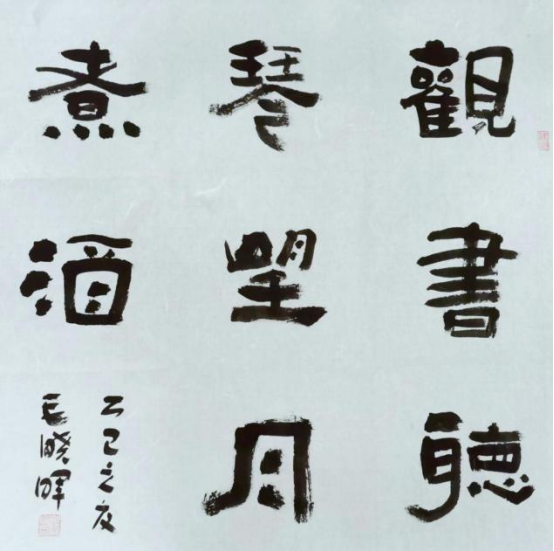 觀書聽
琴望月
煮酒
乙巳之夏
曉暉